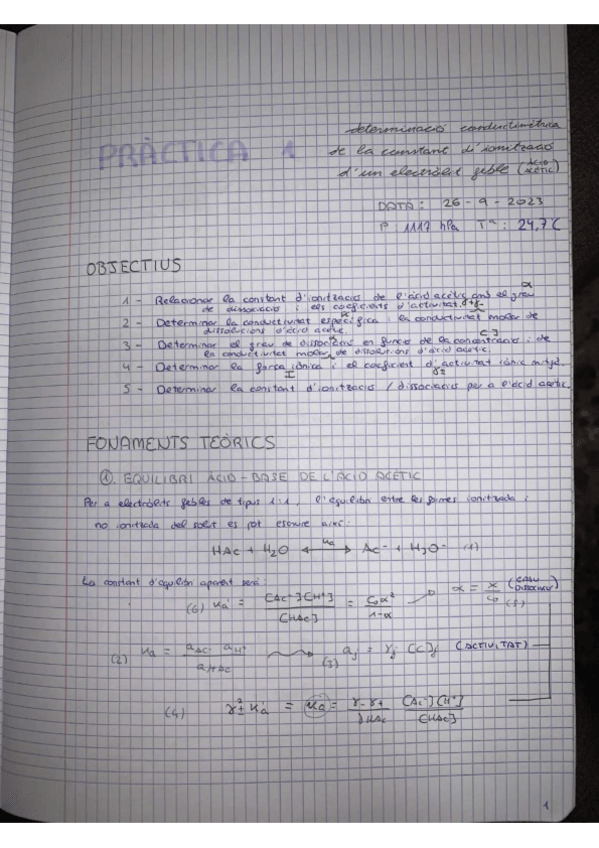 PRÀCTICA 1
determinació conductimètrica
de la constant d'ionització
d'un electròlit feble (ÀCID ACÈTIC)
DATA: 26-9-2023
P: 1117 hPa Tª: 24,7C
OBJECTIUS
1 - Relacionar la constant d'ionització de l'àcid acètic amb el grau α
de dissociació i els coeficients d'activitat.
2 - Determinar la conductivitat específica i la conductivitat molar
de dissolucions d'àcid acètic.
3 - Determinar el grau de dissociació en funció de la concentració i de
la conductivitat molar de dissolucions d'àcid acètic.
4 - Determinar la força iònica i el coeficient d'activitat iònic mitjà.
I γ±
5 - Determinar la constant d'ionització / dissociació per a l'àcid acètic.
FONAMENTS TEÒRICS
①. EQUILIBRI ÀCID-BASE DE L'ÀCID ACÈTIC
Per a electròlits febles de tipus 1:1, l'equilibri entre les formes ionitzada i
no ionitzada del solut es pot escriure així:
HAc + H₂O ⟷ Ac⁻ + H₃O⁻ (1)
La constant d'equilibri aparent serà:
(6) Ka' = [Ac⁻][H⁺] / [HAc] = C₀α² / 1-α α = x / C₀ (GRAU DISSOCIACIÓ) (5)
(2) Ka = aAc⁻ aH⁺ / aHAc (3) aj = γj [C]j (ACTIVITAT)
(4) γ±² Ka' = Ka = γ₋γ₊ / γHAc [Ac⁻][H⁺] / [HAc]
1